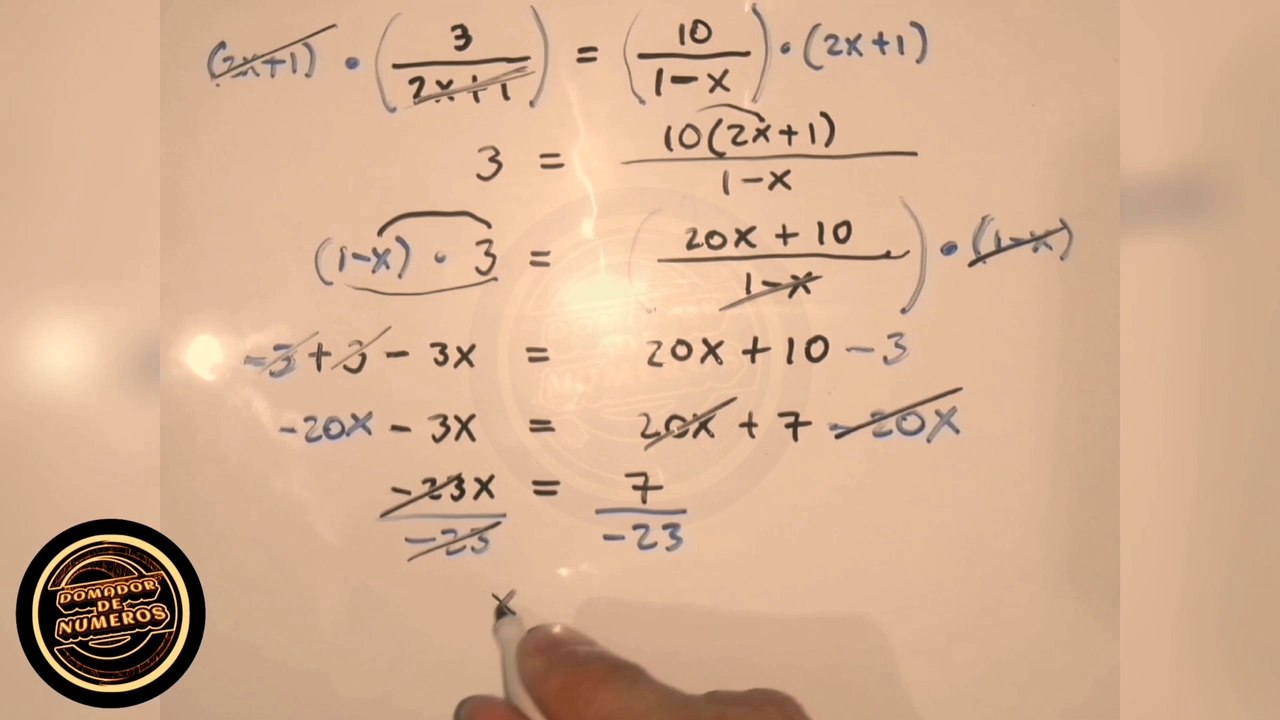 (2x+1) · (3/(2x+1)) = (10/(1-x)) · (2x+1)
3 = 10(2x+1)/(1-x)
(1-x) · 3 = ((20x + 10)/(1-x)) · (1-x)
-3 + 3 - 3x = 20x + 10 - 3
-20x - 3x = 20x + 7 - 20x
-23x/-23 = 7/-23
x
DOMADOR
DE
NUMEROS